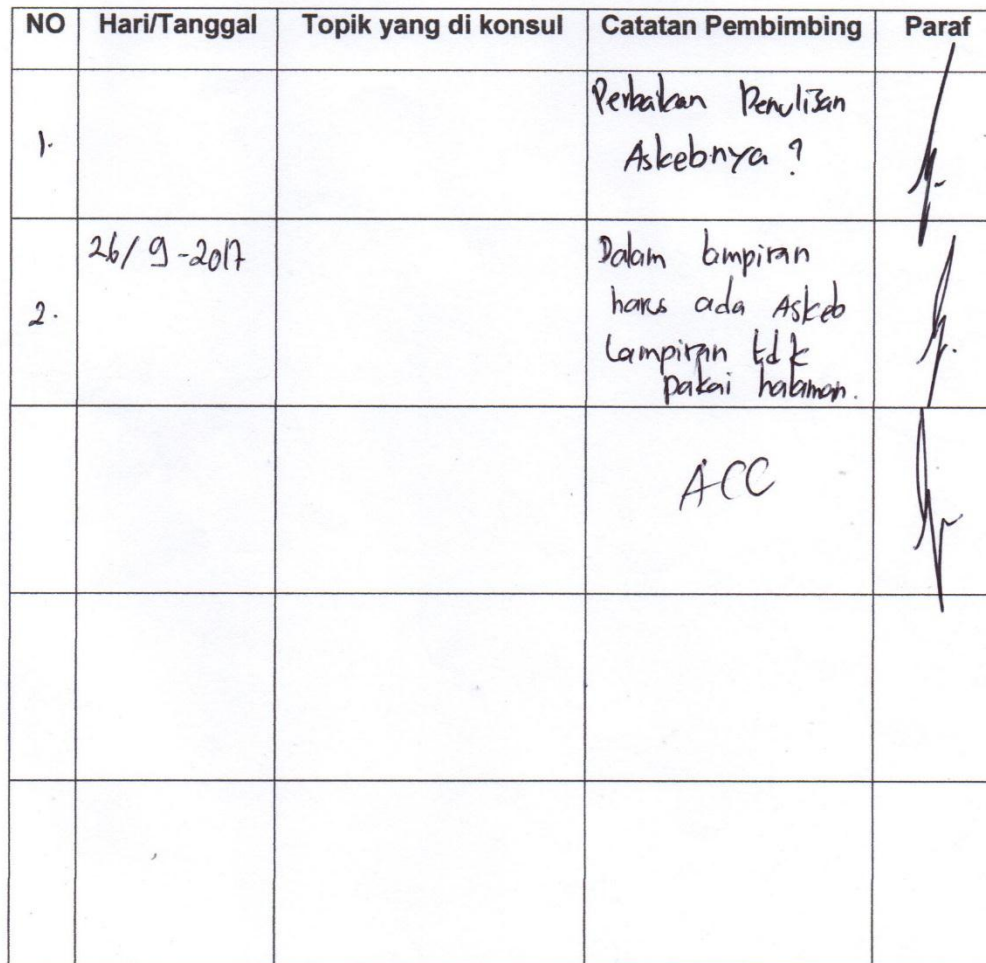 NO Hari/Tanggal Topik yang di konsul Catatan Pembimbing Paraf
1. Perbaikan Penulisan
Askebnya ?
2. 26/9-2017 Dalam lampiran
harus ada Askeb
Lampiran tdk
pakai halaman.
ACC